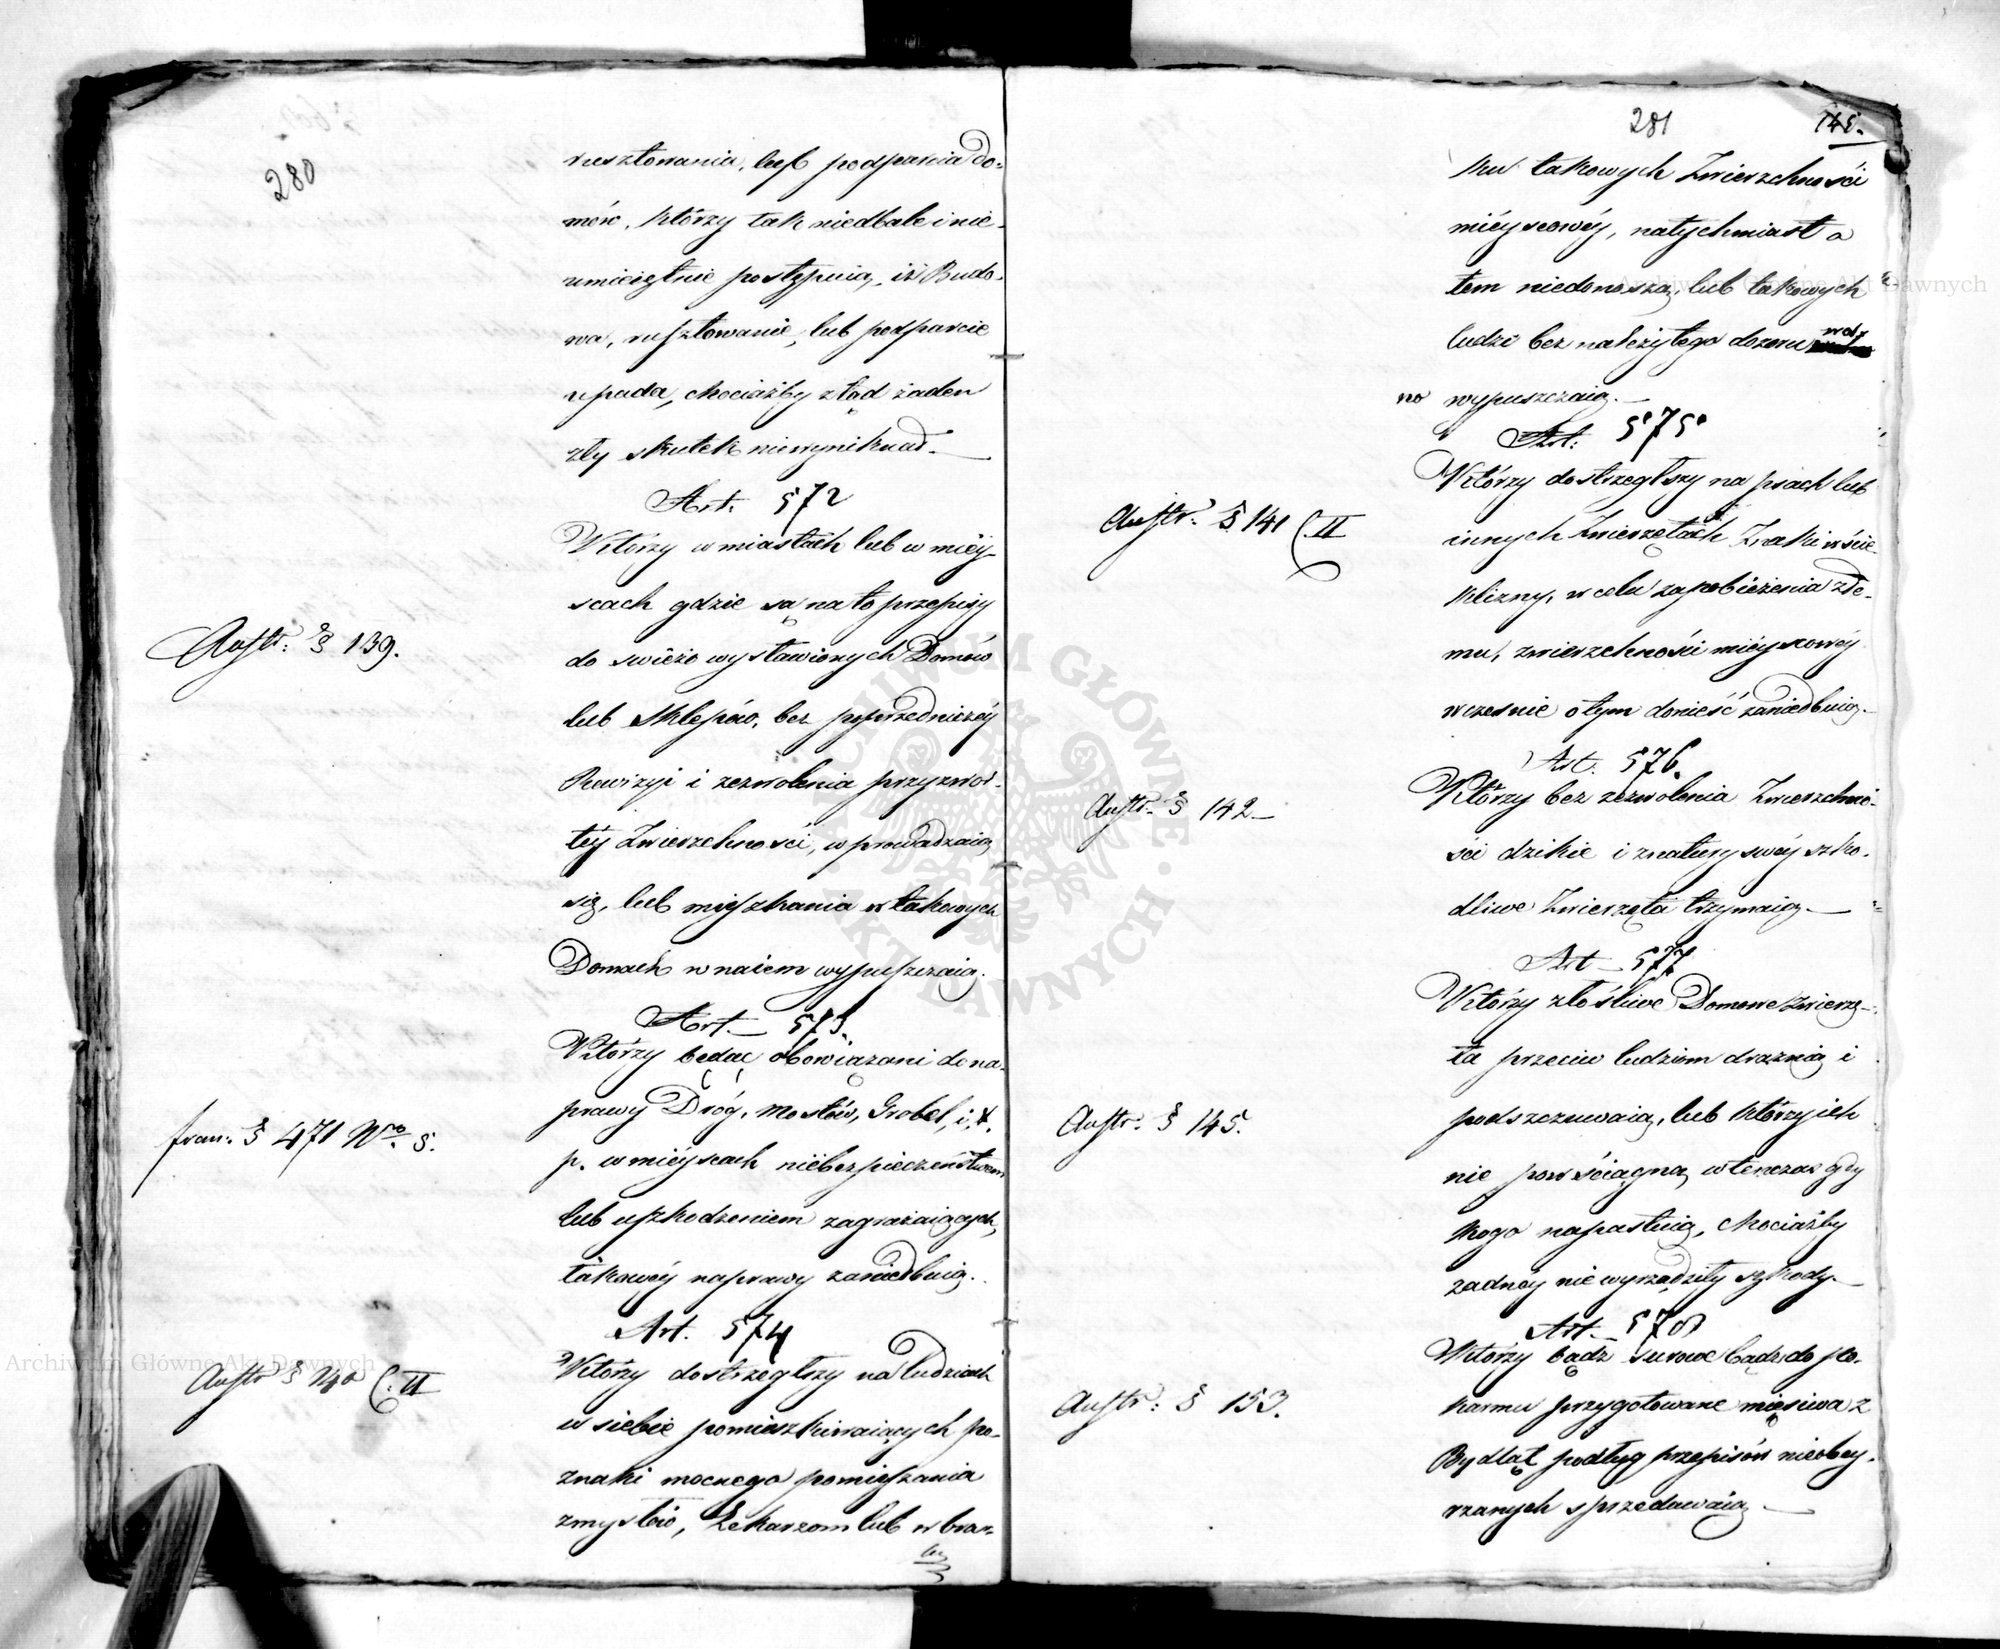 280
rusztowania, lub podparcia do-
mów, którzy tak niedbale i nie-
umieiętnie postępuią, iż Budo-
wa, rusztowanie, lub podparcie
upada, chociażby ztąd żaden
zły skutek niewyniknął.
Art. 572
Austr: § 139.
Którzy w miastach lub w miéy-
scach gdzie są na to przepisy
do swieżo wystawionych Domów
lub Sklepów, bez poprzedniczéy
Rewizyi i zezwolenia przyzwoi-
téy Zwierzchności, wprowadzaią
się, lub mieszkania w takowych
Domach w naiem wypuszczaią.
Art. 573.
fran: § 471 Nro 5.
Którzy będąc obowiązani do na-
prawy Dróg, mostów, Grobel, i, t,
p. w miéyscach niebezpieczeństwem
lub uszkodzeniem zagrażaiących,
takowéy naprawy zaniedbuią.
Art. 574
Austr § 140 C. II
Którzy dostrzegłszy na ludziach
w siebie pomieszkiwaiących po-
znaki mocnego pomieszania
zmysłów, Lekarzom lub w bra-
ku
281
145.
ku takowych Zwierzchności
miéyscowéy, natychmiast o
tem niedonoszą, lub takowych
ludzi bez należytego dozoru wol-
no wypuszczaią.
Art: 575
Austr: § 141 C. II
Którzy dostrzegłszy na psach lub
innych Zwierzętach Znaki wście-
klizny, w celu zapobieżenia złe-
mu, zwierzchności miéyscowéy
wczesnie o tym donieść zaniedbuią.
Art. 576.
Austr: § 142
Którzy bez zezwolenia Zwierzchno-
ści dzikie i z natury swéy szko-
dliwe Zwierzęta trzymaią.
Art 577
Austr: § 145.
Którzy złośliwe Domowe zwierzę-
ta przeciw ludziom drażnią i
podszczuwaią, lub którzy ich
nie powściągną wtenczas gdy
kogo napastuią, chociażby
żadnéy nie wyrządziły szkody.
Art. 578
Austr: § 153.
Którzy bądź surowe bądź do po-
karmu przygotowane mięsiwa z
Bydląt podług przepisów nieobey-
rzanych sprzedawaią
Archiwum Główne Akt Dawnych
Archiwum Główne Akt Dawnych
ARCHIWUM GŁÓWNE AKT DAWNYCH